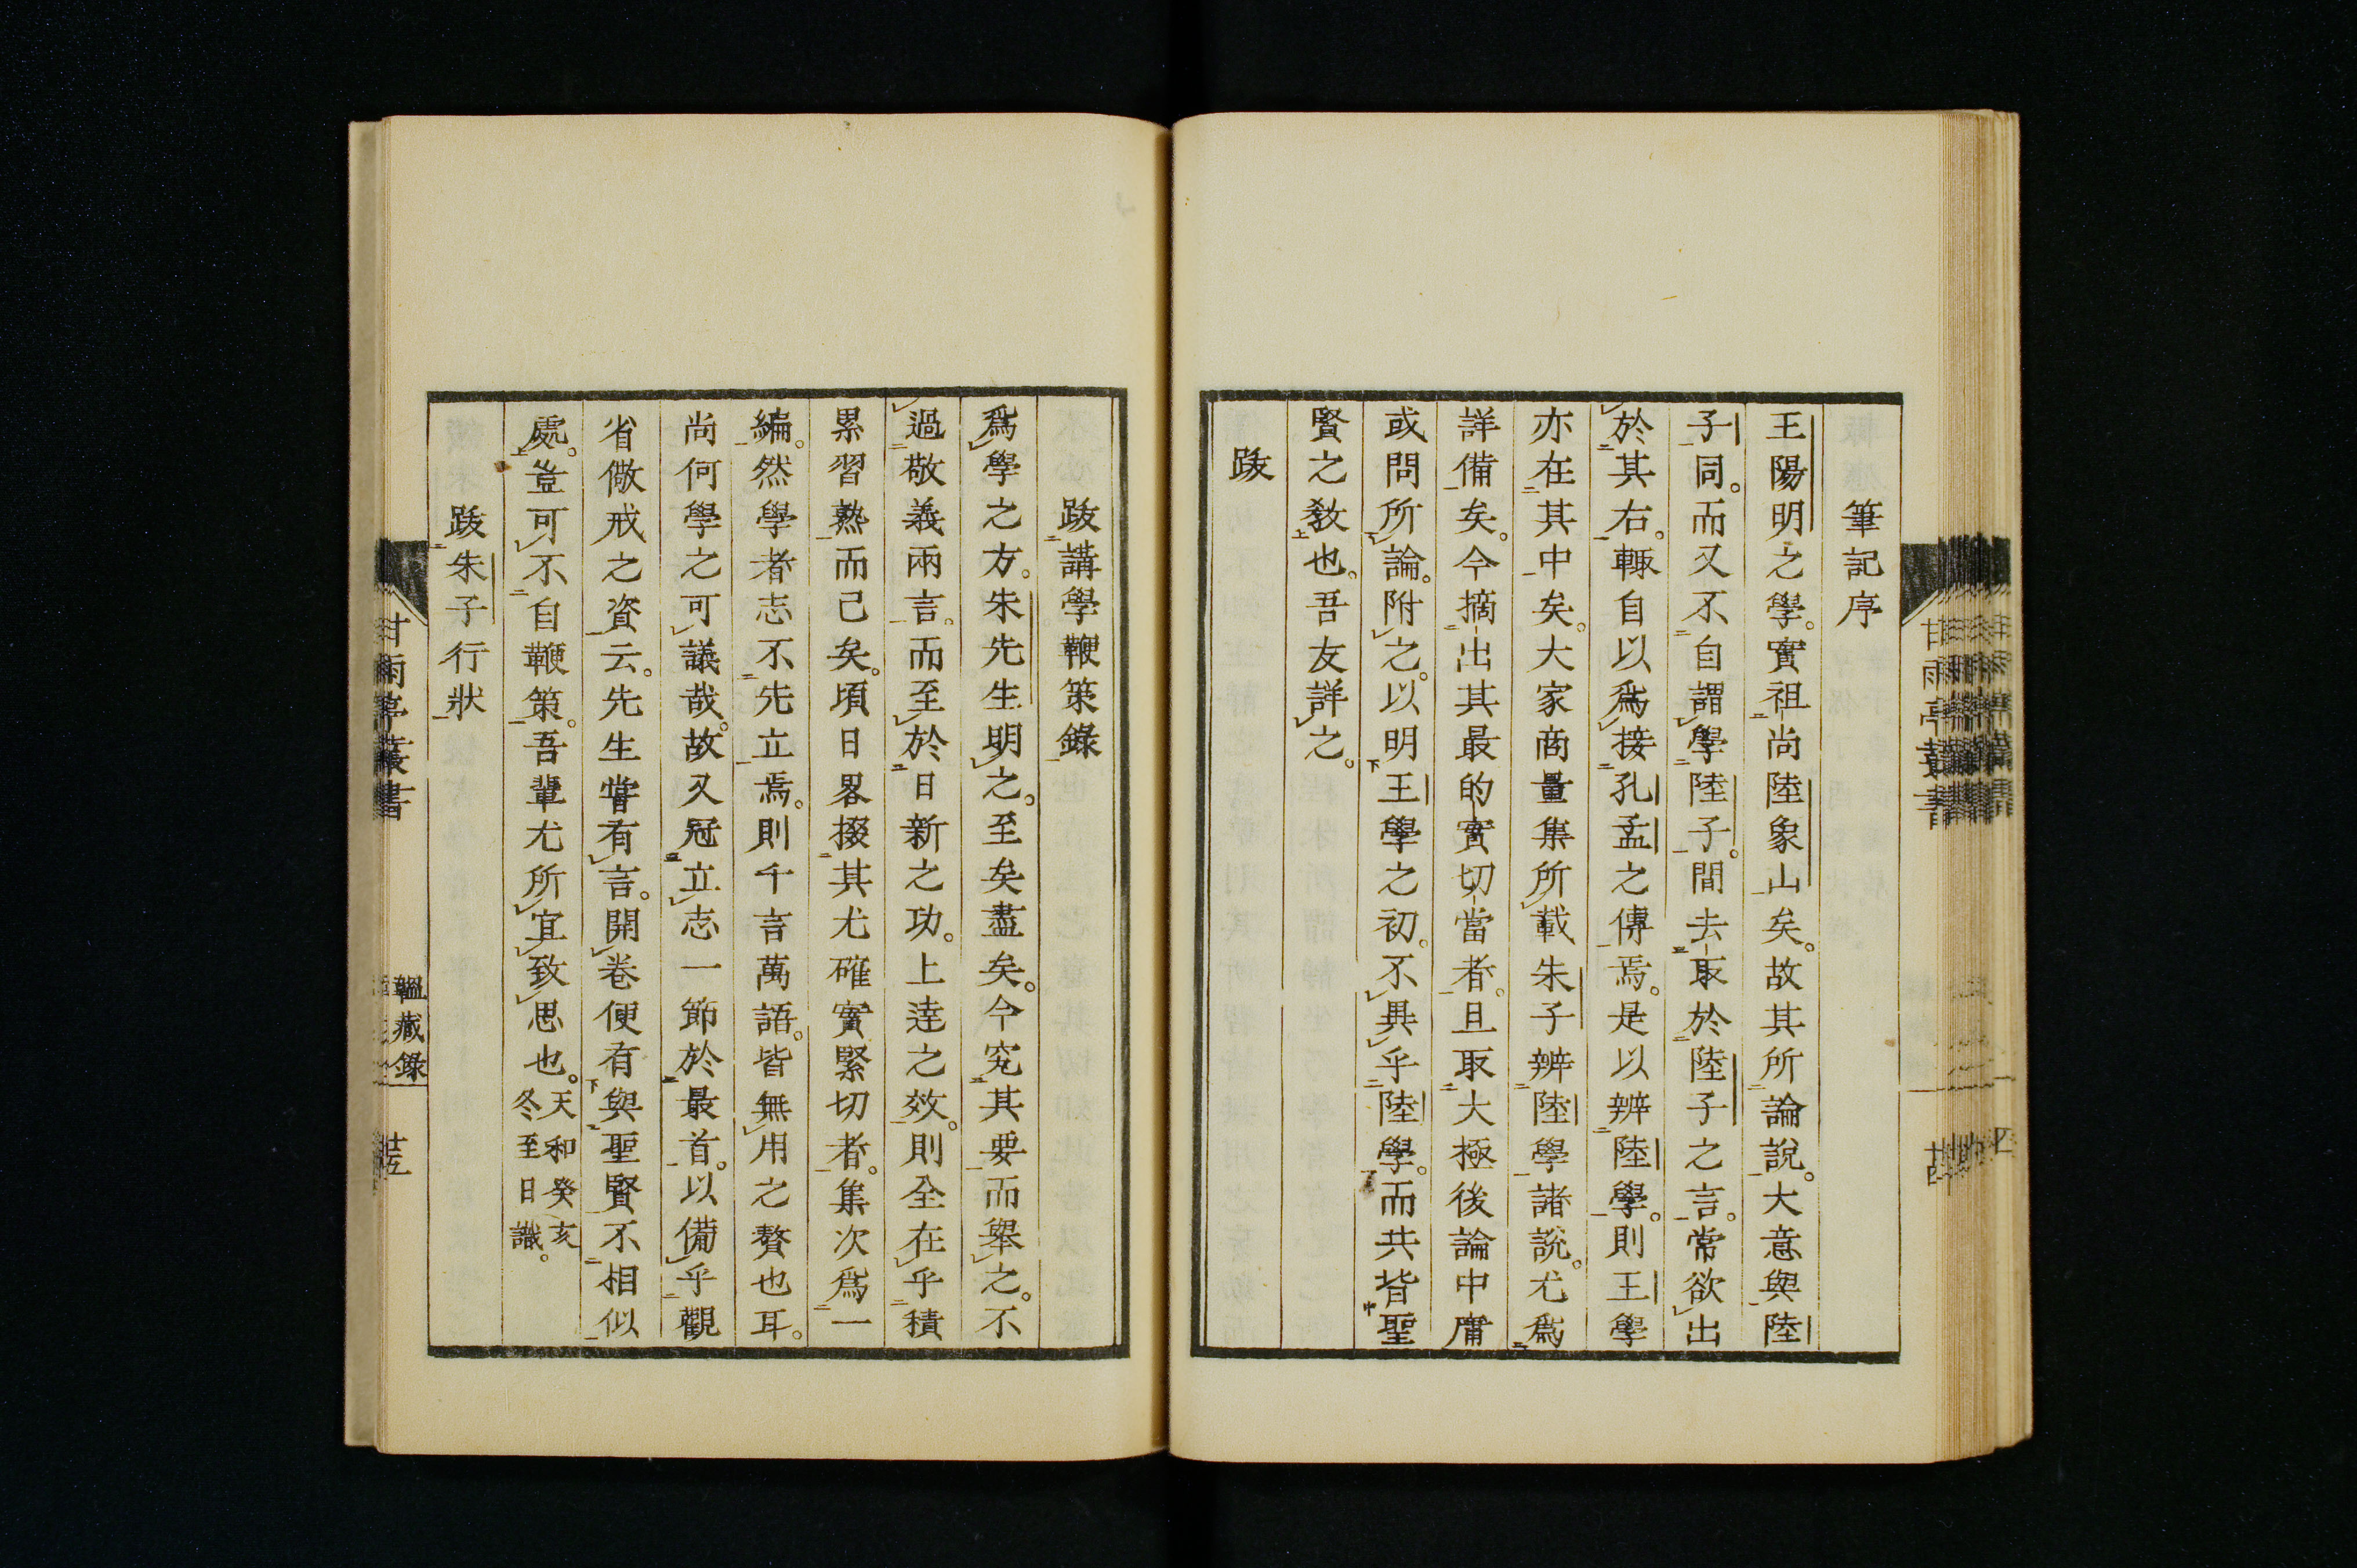 筆記序
王陽明之學。實祖尚陸象山矣。故其所論説。大意與陸
子同。而又不自謂學陸子。間去取於陸子之言。常欲出
於其右。輙自以爲接孔孟之傳焉。是以辨陸學。則王學
亦在其中矣。大家商量集所載朱子辨陸學諸説。尤爲
詳備矣。今摘出其最的實切當者。且取大極後論中庸
或問所論。附之。以明王學之初。不異乎陸學。而共背聖
賢之敎也。吾友詳之。
跋
甘雨亭叢書
跋講學鞭策錄
爲學之方。朱先生明之。至矣盡矣。今究其要而擧之。不
過敬義兩言。而至於日新之功。上達之效。則全在乎積
累習熟而已矣。頃日畧掇其尤確實緊切者。集次爲一
編。然學者志不先立焉。則千言萬語。皆無用之贅也耳。
尚何學之可議哉。故又冠立志一節於最首。以備乎觀
省儆戒之資云。先生嘗有言。開卷便有與聖賢不相似
處。豈可不自鞭策。吾輩尤所宜致思也。天和癸亥
冬至日識。
跋朱子行狀
甘雨亭叢書
韞藏錄